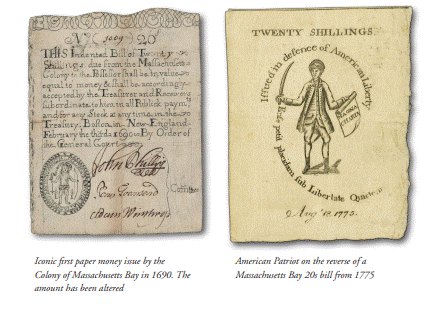 Nº 5009 20s
THIS Indented Bill of Twenty
Shillings due from the Massachusets
Colony to the Possessor shall be in value
equal to money & shall be accordingly
accepted by the Treasurer and Receivers
subordinate to him in all Publick paymts
and for any Stock at any time in the
Treasury. Boston in New England
February the third 1690 By Order of
the General Court
John Phillips
Penn Townsend
Adam Winthrop
Comtee
TWENTY SHILLINGS.
Issued in defence of American Liberty
Ense petit placidam sub Libertate Quietem
MAGNA
CHARTA
Augt 18, 1775.
Iconic first paper money issue by the
Colony of Massachusetts Bay in 1690. The
amount has been altered
American Patriot on the reverse of a
Massachusetts Bay 20s bill from 1775